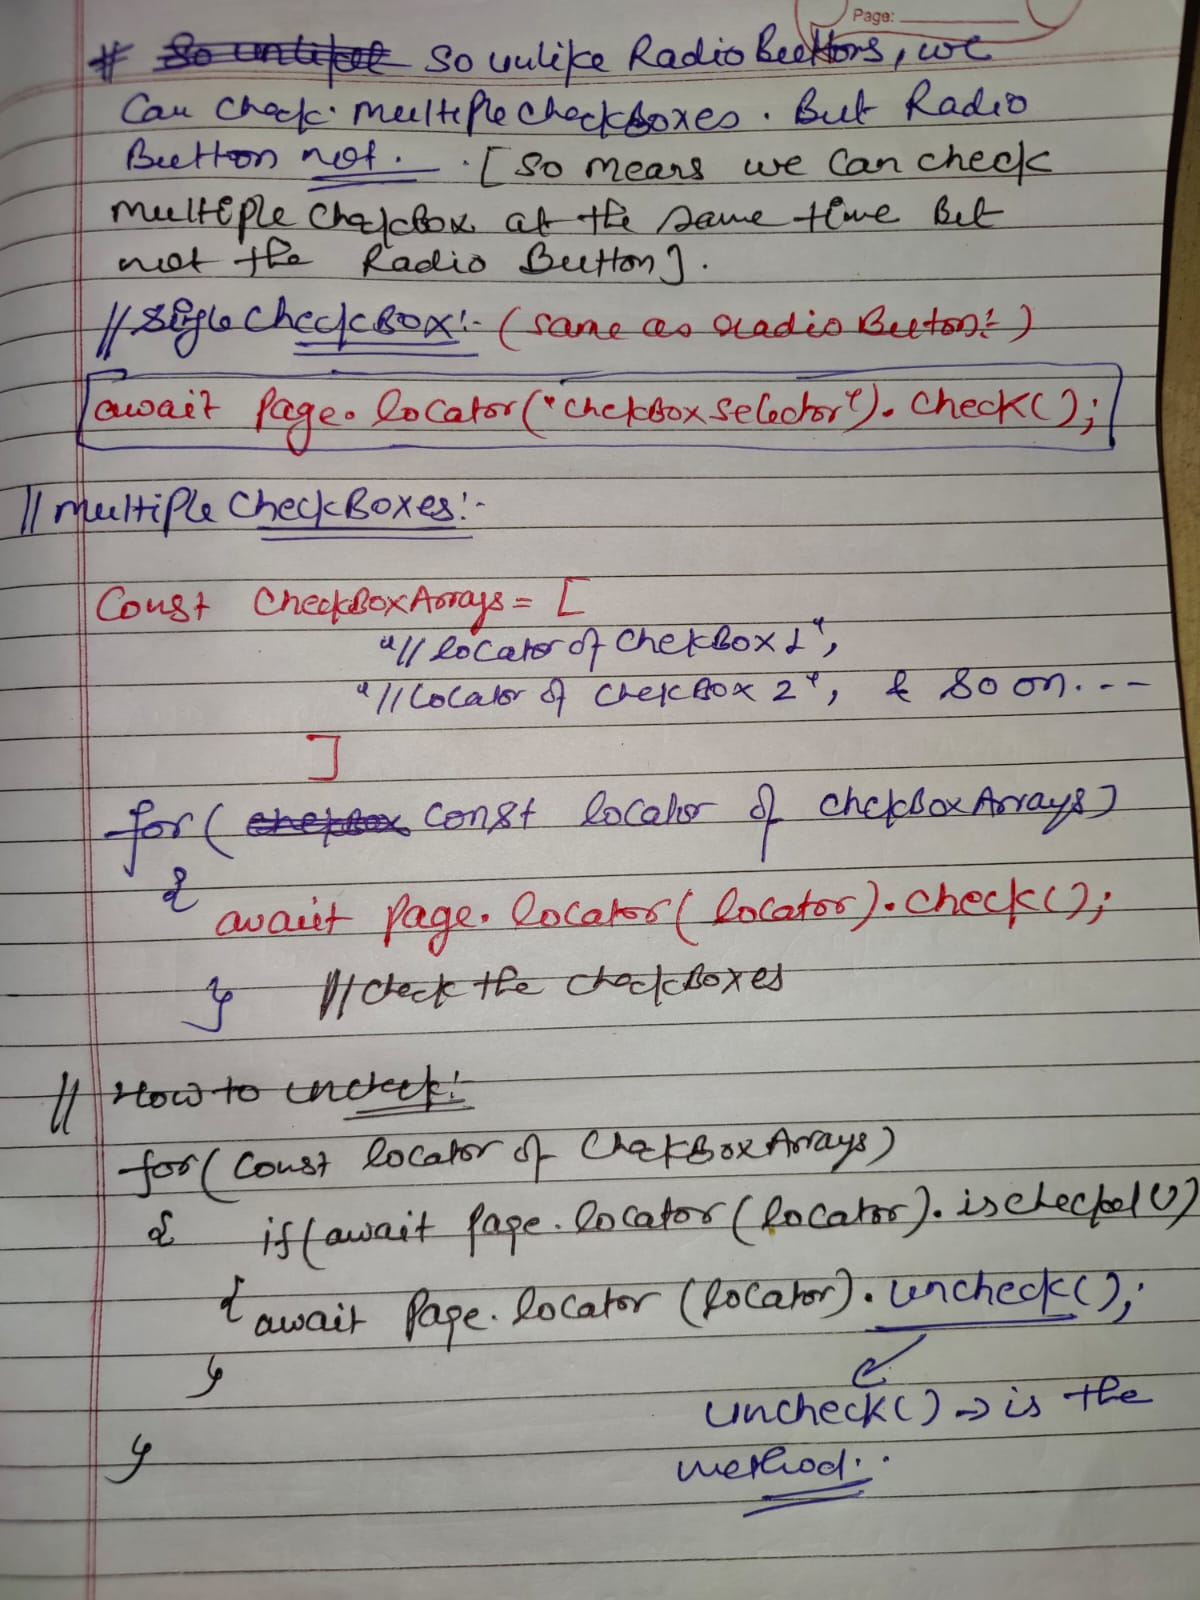 Page:
# So unlike Radio Buttons, we
Can check multiple checkBoxes. But Radio
Button not. [So means we can check
multiple checkBox at the same time But
not the Radio Button].
// Single CheckBox:- (same as radio Button:-)
await Page.locator("chekBox Selector").check();
// multiple CheckBoxes:-
Const CheckBoxArrays = [
"// locator of ChekBox 1",
"// Locator of ChekBox 2", & So on...
]
for( const locator of chekBoxArrays)
{
await Page.locator(locator).check();
} // check the checkBoxes
// How to uncheck:-
for(Const locator of CheckBoxArrays)
{ if(await page.locator(locator).ischecked())
{ await Page.locator(locator).uncheck();
}
uncheck() → is the
}
method..